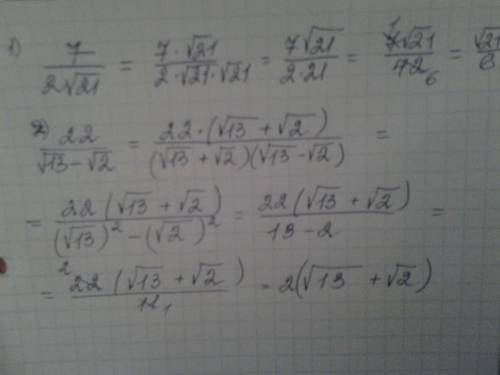 1) 7/(2√21) = (7·√21)/(2·√21·√21) = 7√21/(2·21) = 7√21/42 = √21/6
2) 22/(√13-√2) = 22·(√13+√2)/((√13+√2)(√13-√2)) =
= 22(√13+√2)/((√13)²-(√2)²) = 22(√13+√2)/(13-2) =
= 22(√13+√2)/11 = 2(√13+√2)